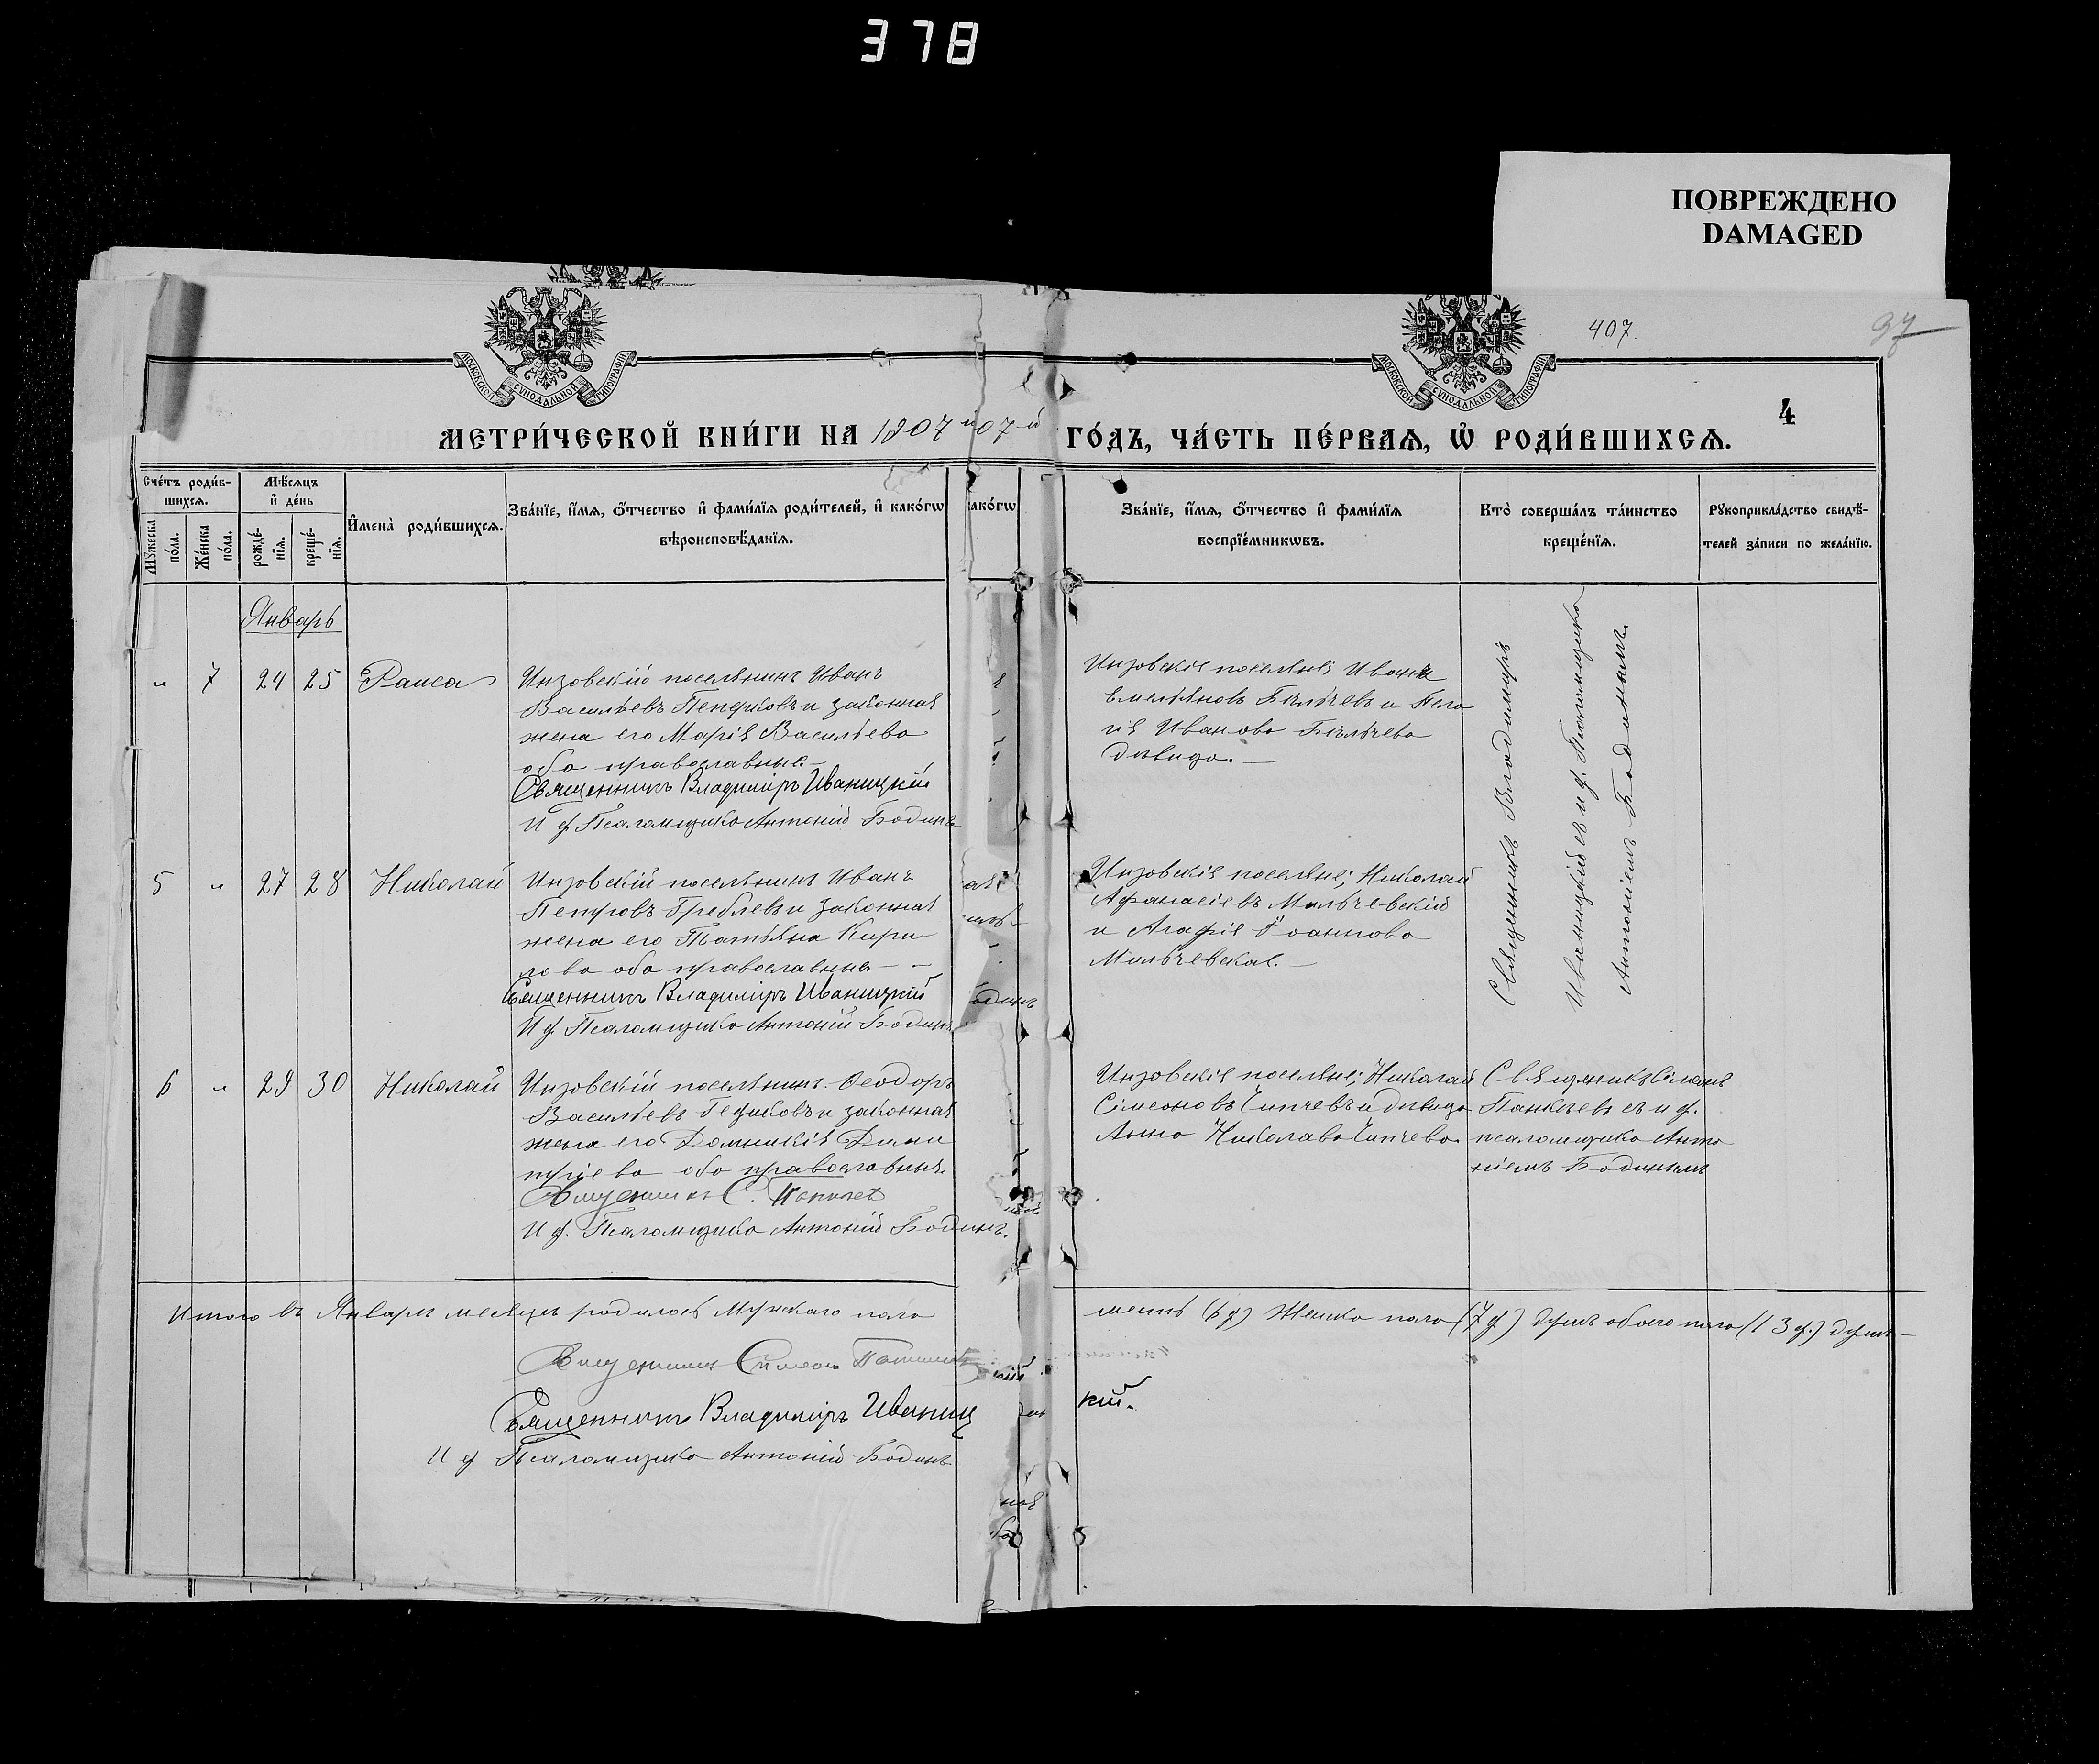 378
ПОВРЕЖДЕНО
DAMAGED
МОСКОВСКОЙ СУНОДАЛЬНОЙ ТИПОГРАФІИ
МОСКОВСКОЙ СУНОДАЛЬНОЙ ТИПОГРАФІИ
407.
97
4
МЕТРИ́ЧЕСКОЙ КНИ́ГИ НА 1907 й 07 й ГО́ДЪ, ЧА́СТЬ ПЕ́РВАѦ, Ѡ҆ РОДИ́ВШИХСѦ.
Сче́тъ роди́в-
шихсѧ.
Мꙋ́жеска по́ла.
Же́нска по́ла.
Мѣ́сѧцъ
и҆ де́нь
рожде́-
нїѧ.
креще́-
нїѧ.
И҆мена̀ роди́вшихсѧ.
Зва́нїе, и҆́мѧ, ѻ҆́тчество и҆ фами́лїѧ роди́телей, и҆ како́гѡ
вѣроисповѣ́данїѧ.
како́гѡ
Зва́нїе, и҆́мѧ, ѻ҆́тчество и҆ фами́лїѧ
воспрїе́мникѡвъ.
Кто̀ соверша́лъ та́инство
креще́нїѧ.
Рꙋкоприкла́дство свидѣ́-
телей за́писи по жела́нїю.
Январь
„ 7 24 25 Раиса
Инзовскій поселянинъ Иванъ
Васильевъ и законная
жена его Марія Васильева
оба православные.
Священникъ Владиміръ Иваницкій
И ф Псаломщика Антоній Бодинъ
Инзовскіе поселяне Иванъ
Емельяновъ Бѣльчевъ и Пела
гія Иванова Бѣльчева
дѣвица.
Священникъ Владиміръ
Иваницкій съ и ф. Псаломщика
Антоніемъ Бодинымъ.
5 „ 27 28 Николай
Инзовскій поселянинъ Иванъ
Петровъ Греблевъ и законная
жена его Татьяна Кири
лова оба православные
Священникъ Владиміръ Иваницкій
И ф. Псаломщика Антоній Бодинъ
одинъ
Инзовскіе поселяне; Николай
Афанасіевъ Мильчевскій
и Агафія Іоаннова
Мильчевская.
6 „ 29 30 Николай
Инзовскій поселянинъ Ѳеодоръ
Васильевъ и законная
жена его Домникія Дими
тріева оба православные.
Священникъ С.
И ф. Псаломщика Антоній Бодинъ.
Инзовскіе поселяне; Николай
Сімеоновъ Чипчевъ и дѣвица
Анна Николаева Чипчева.
Священникъ Сімеонъ
съ и ф.
псаломщика Анто
ніемъ Бодинымъ
Итого въ Январѣ месяцѣ родилось Мужскаго пола
шесть (6 д) Женска пола (7 д) душъ обоего пола (13 д.) душъ
Священникъ Симеонъ
Священникъ Владиміръ Иваниц
кій.
И ф Псаломщика Антоній Бодинъ